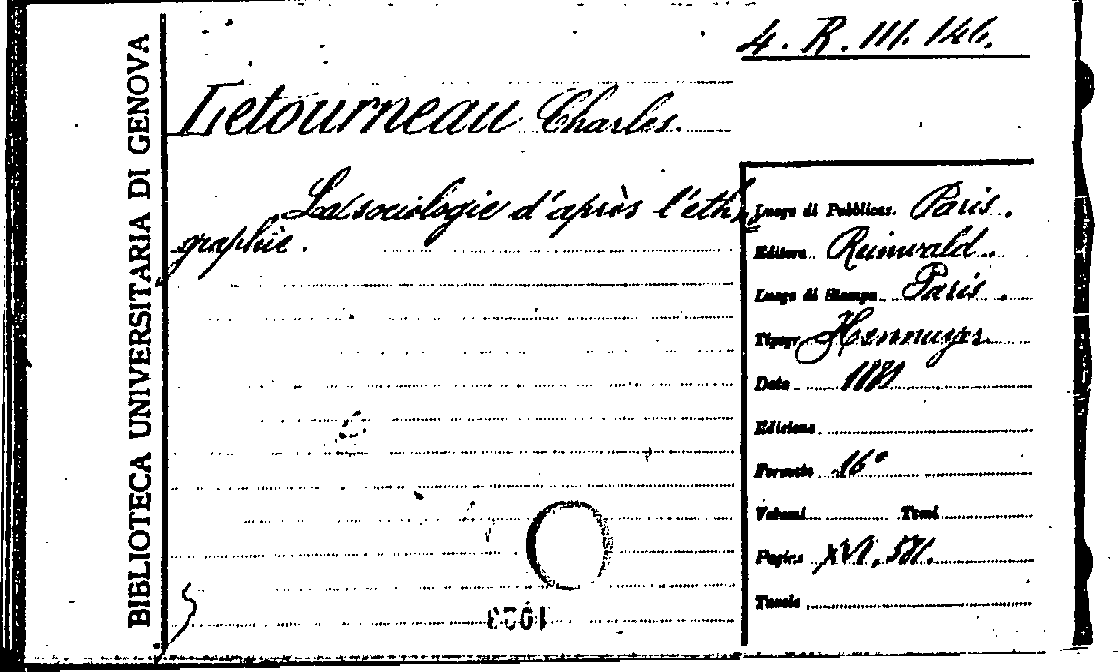 4. R. III. 146.
BIBLIOTECA UNIVERSITARIA DI GENOVA
Letourneau Charles.
La sociologie d'après l'ethno
graphie.
Luogo di Pubblicaz. Paris.
Editore Reinwald.
Luogo di Stampa Paris.
Tipogr. Hennuyer
Data
Edizione
Formato 16°
Volumi Tomi
Pagine XVI, 581.
Tavole